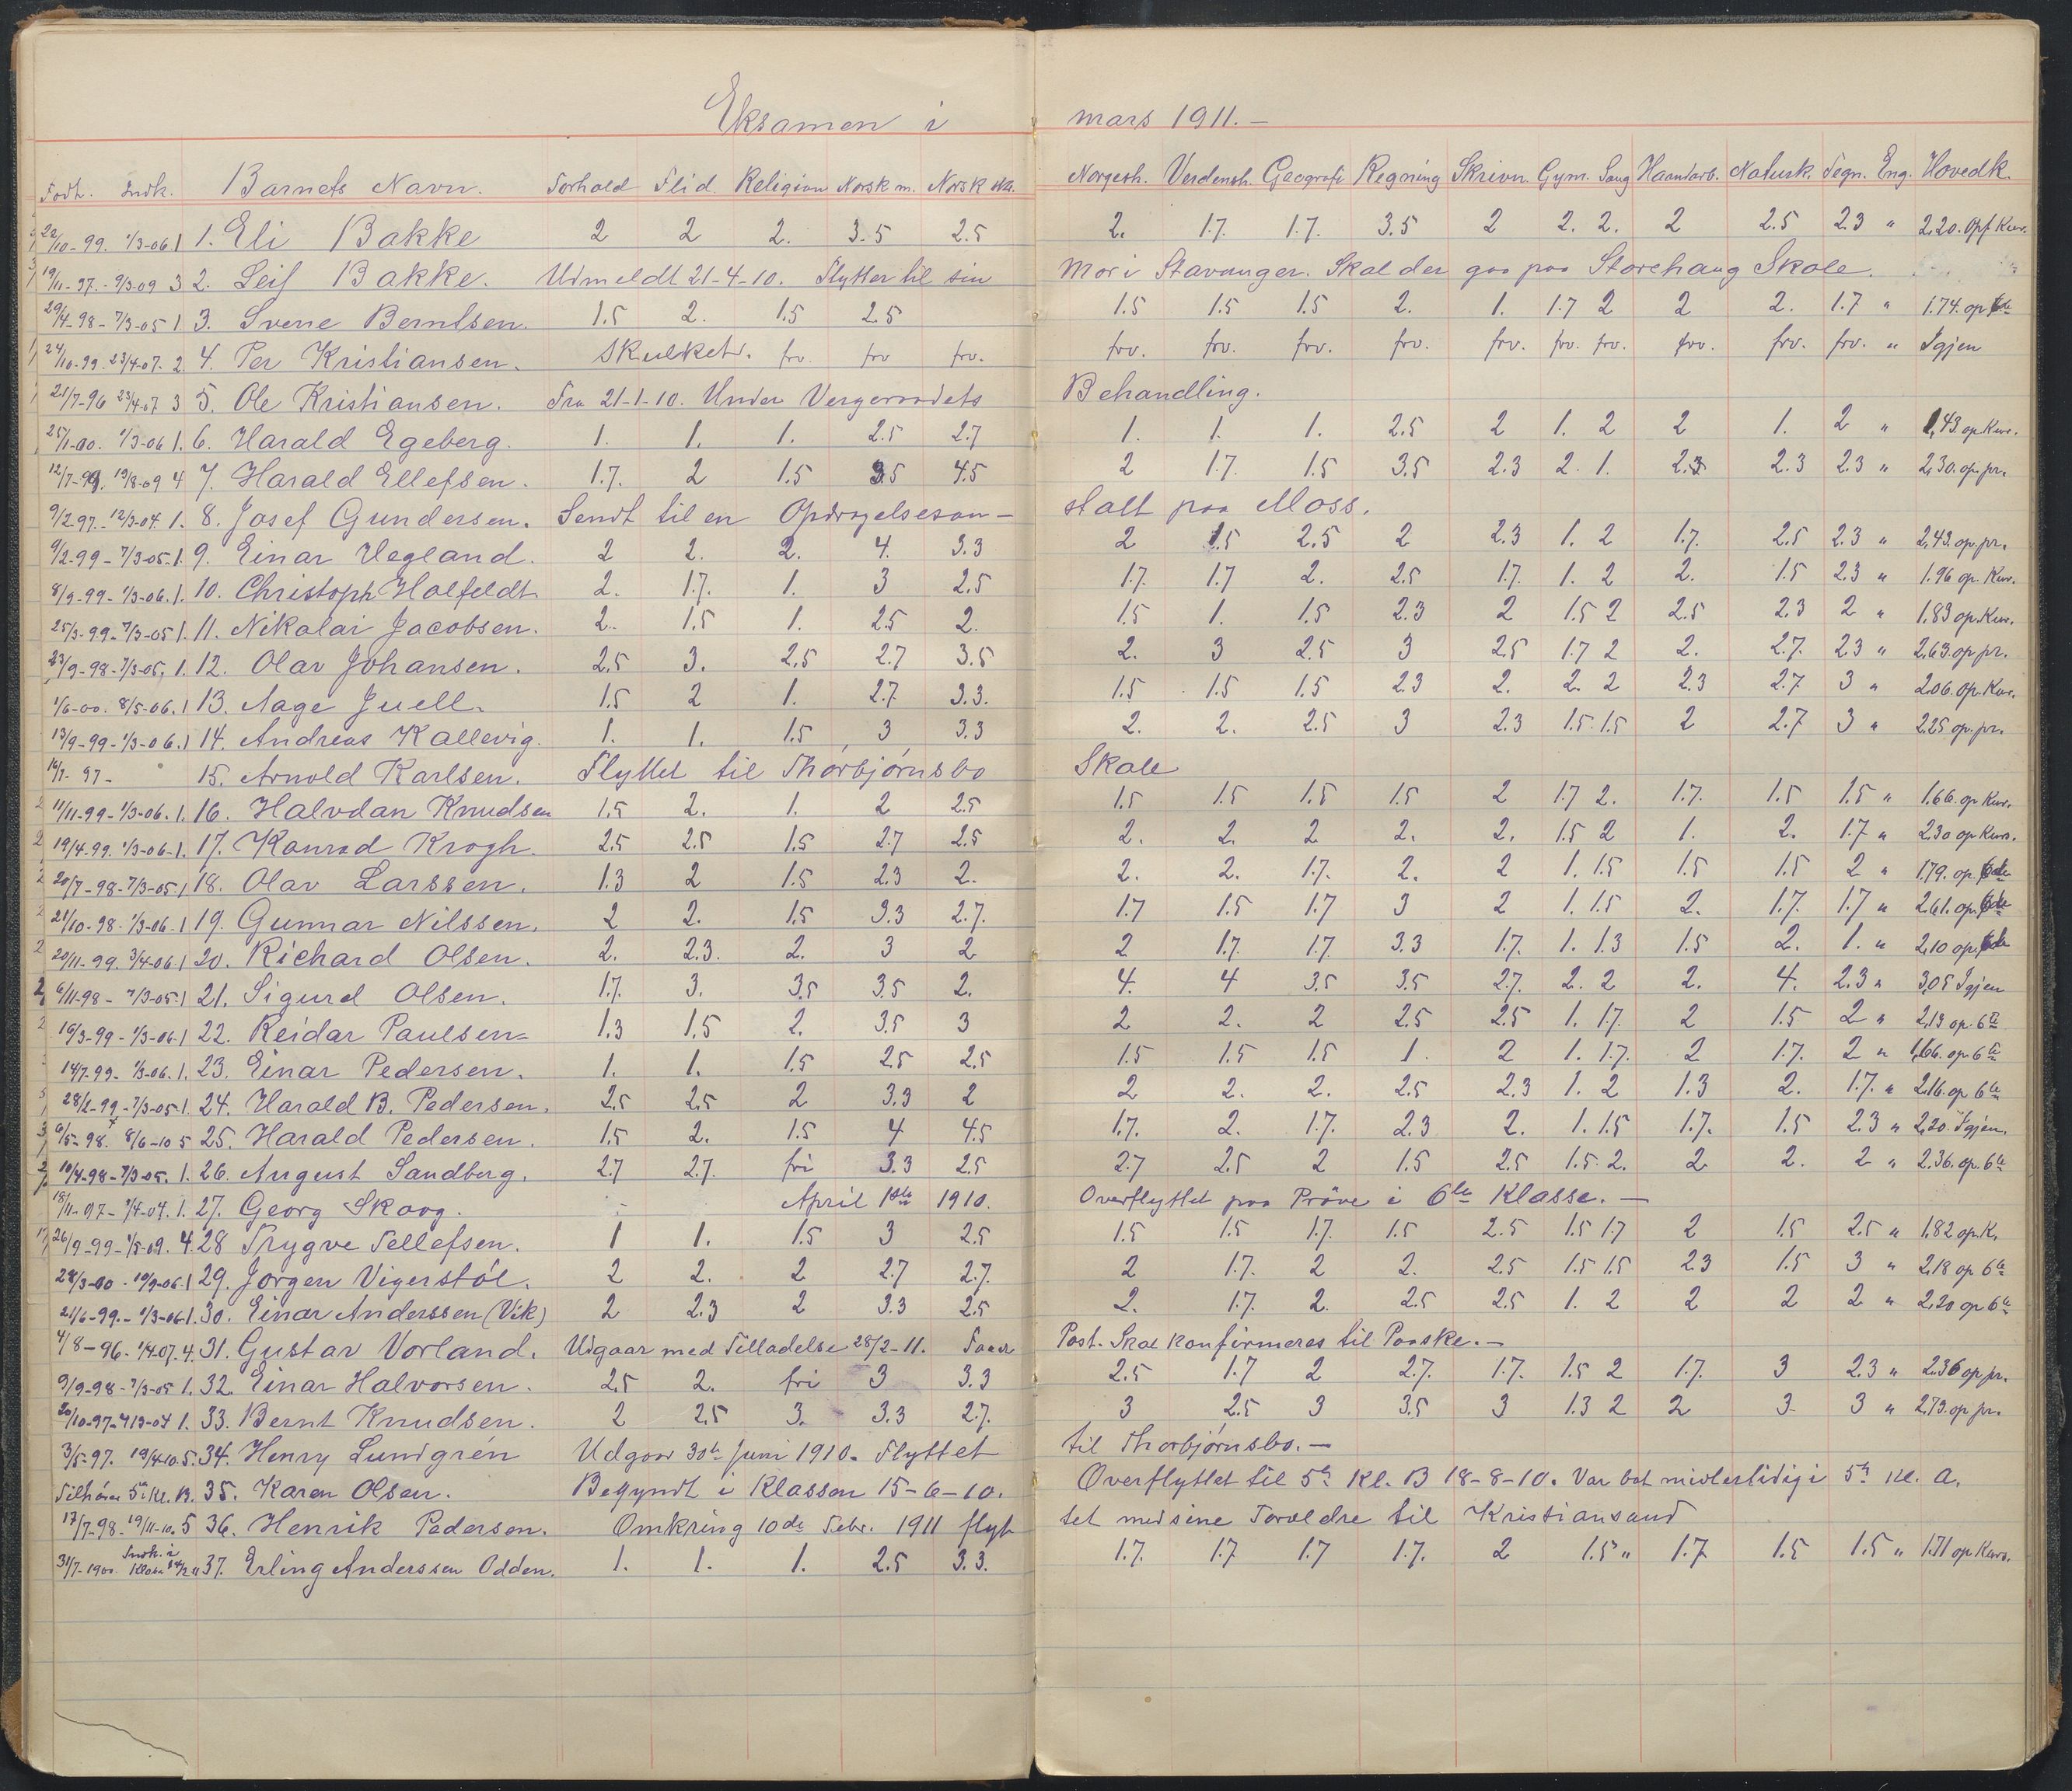 Eksamen i mars 1911. —
Født. Indk. Barnets Navn. Forhold Flid. Religion Norsk m. Norsk skr. Norgesh. Verdensh. Geografi Regning Skrivn. Gym. Sang Haandarb. Naturk. Tegn. Eng. Hovedk.
22/10-99. 1/3-06 1 1. Eli Bakke 2 2 2. 3.5 2.5 2. 1.7. 1.7. 3.5 2 2. 2. 2 2.5 2.3 " 2,20. Opf Kurs.
19/11-97.-9/3-09 3 2. Leif Bakke. Udmeldt 21-4-10. Flytter til sin Mor i Stavanger. Skal der gaa paa Storehaug Skole.
29/4-98-7/3-05 1. 3. Svene Berntsen. 1.5 2. 1.5 2.5 1.5 1.5 1.5 2. 1. 1.7 2 2 2. 1.7 " 1.74. op 6te
24/10-99. 23/4-07. 2. 4. Per Kristiansen. Skulket. frv. frv frv. frv. frv. frv. frv. frv. frv. frv. frv. frv. frv. " Igjen
21/7-96 23/4-07 3 5. Ole Kristiansen. Fra 21-1-10. Under Vergeraadets Behandling.
25/1-00. 1/3-06 1. 6. Harald Egeberg. 1. 1. 1. 2.5 2.7 1. 1. 1. 2.5 2 1. 2 2 1. 2 " 1,43. op Kurs.
12/7-99. 19/8-09 4 7. Harald Ellefsen. 1.7. 2 1.5 3.5 4.5 2 1.7. 1.5 3.5 2.3 2. 1. 2.3 2.3 2.3 " 2,30. op. pr.
9/2-97.-12/3-04. 1. 8. Josef Gundersen. Sendt til en Opdragelsesan- stalt paa Moss.
9/2-99-7/3-05-1. 9. Einar Vegland. 2 2. 2. 4. 3.3 2 1.5 2.5 2 2.3 1. 2 1.7. 2.5 2.3 " 2,43. op. pr.
8/9-99-1/3-06. 1. 10. Christoph Holfeldt 2. 1.7. 1. 3 2.5 1.7. 1.7 2. 2.5 1.7. 1. 2 2. 1.5 2.3 " 1.96 op. Kurs.
25/3-99-7/3-05 1. 11. Nikolai Jacobsen. 2. 1.5 1. 2.5 2. 1.5 1. 1.5 2.3 2 1.5 2 2.5 2.3 2 " 1.83 op. Kurs.
23/9-98-7/3-05. 1. 12. Olav Johansen. 2.5 3. 2.5 2.7 3.5 2. 3 2.5 3 2.5 1.7 2 2. 2.7. 2.3 " 2,63. op pr.
1/6-00. 8/5-06. 1 13. Aage Juell. 1.5 2 1. 2.7 3.3. 1.5 1.5 1.5 2.3 2. 2. 2 2.3 2.7 3 " 2.06. op. Kur.
13/9-99-1/3-06. 1 14. Andreas Kallevig. 1. 1. 1.5 3 3.3 2. 2. 2.5 3 2.3 1.5 1.5 2 2.7 3 " 2.25 op. pr.
16/7-97- 15. Arnold Karlsen. Flyttet til Thorbjørnsbo Skole
11/11-99-1/3-06. 1. 16. Halvdan Knudsen 1.5 2. 1. 2 2.5 1.5 1.5 1.5 1.5 2 1.7 2. 1.7. 1.5 1.5 " 1.66. op Kurs.
19/4-99. 1/3-06-1. 17. Konrad Krogh. 2.5 2.5 1.5 2.7 2.5 2. 2. 2 2. 2. 1.5 2 1. 2. 1.7 " 2.30 op Kurs.
20/7-98-7/3-05 1. 18. Olav Larssen. 1.3 2 1.5 2.3 2. 2. 2. 1.7. 2. 2 1. 1.5 1.5 1.5 2 " 1.79. op. 6te
21/10-98-1/3-06-1 19. Gunnar Nilssen. 2 2. 1.5 3.3 2.7. 1.7 1.5 1.7 3 2 1. 1.5 2. 1.7. 1.7 " 2.61. op. 6te
20/11-99. 3/4-06 1 20. Richard Olsen. 2. 2.3. 2. 3 2 2 1.7. 1.7. 3.3 1.7. 1. 1.3 1.5 2. 1. " 2,10 op. 6te
6/11-98-7/3-05-1 21. Sigurd Olsen. 1.7. 3. 3.5 3.5 2. 4. 4 3.5 3.5 2.7. 2. 2 2. 4. 2.3 " 3,05 Igjen
16/3-99-1/3-06-1 22. Reidar Paulsen- 1.3 1.5 2. 3.5 3 2 2. 2 2.5 2.5 1. 1.7. 2 1.5 2 " 2,13 op. 6te
14/7-99-1/3-06. 1. 23. Einar Pedersen. 1. 1. 1.5 2.5 2.5 1.5 1.5 1.5 1. 2 1. 1.7. 2 1.7. 2 " 1,66. op. 6te
28/2-99-7/3-05-1. 24. Harald B. Pedersen. 2.5 2.5 2 3.3 2 2 2. 2. 2.5 2.3 1. 2 1.3 2. 1.7. " 2.16. op 6te
6/5-98. 8/6-10 5 25. Harald Pedersen. 1.5 2. 1.5 4 4.5 1.7. 2. 1.7. 2.3 2. 1. 1.5 1.7. 1.5 2.3 " 2,20. Igjen.
10/4-98-7/3-05. 1. 26. August Sandberg. 2.7 2.7. fri 3.3 2.5 2.7 2.5 2 1.5 2.5 1.5. 2. 2 2. 2 " 2.36. op. 6te
18/11-97-7/4-04. 1. 27. Georg Skoog. April 1ste 1910. Overflyttet paa Prøve i 6te Klasse. —
26/9-99-1/5-09. 4. 28 Trygve Tellefsen. 1 1. 1.5 3 2.5 1.5 1.5 1.7. 1.5 2.5 1.5 1.7 2 1.5 2.5 " 1,82 op. K.
28/3-00-19/9-06-1 29. Jørgen Vigerstøl. 2 2. 2 2.7 2.7. 2 1.7. 2 2. 2.5 1.5 1.5 2.3 1.5 3 " 2,18 op 6te
21/6-99.-1/3-06-1. 30. Einar Anderssen (Vik) 2 2.3 2 3.3 2.5 2. 1.7. 2. 2.5 2.5 1. 2 2 2 2 " 2,20 op 6te
4/8-96. 1/4-07. 4. 31. Gustav Vorland. Udgaar med Tilladelse 28/2-11. Faaer Post. Skal konfirmeres til Paaske.—
9/9-98-7/3-05 1. 32. Einar Halvorsen. 2.5 2. fri 3 3.3 2.5 1.7 2 2.7. 1.7. 1.5 2 1.7. 3 2.3 " 2.36 op pr.
20/10-97-4/3-04 1. 33. Bernt Knudsen. 2 2.5 3. 3.3 2.7. 3 2.5 3 3.5 3 1.3 2 2 3 3 " 2.73. op pr.
3/5-97. 19/4-10. 5. 34. Henry Lundgrén Udgaar 30te Juni 1910. Flyttet til Thorbjørnsbo.—
Tilhører 5te Kl. B. 35. Karen Olsen. Begyndt i Klassen 15-6-10. Overflyttet til 5te Kl. B 18-8-10. Var bot midlertidig i 5te Kl. A.
17/7-98-19/11-10. 5 36. Henrik Pedersen. Omkring 10de Febr. 1911 flyt tet med sine Forældre til Kristiansand
31/7-1900. Indk. i Klassen 37. Erling Anderssen Odden. 1. 1. 1. 2.5 3.3. 1.7. 1.7 1.7 1.7. 2 1.5 " 1.7 1.5 1.5 " 1.71 op Kurs.